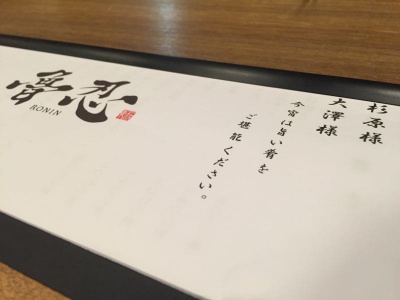 杉原様
大澤様
今宵は旨い肴を
ご堪能ください。
忍
RONIN